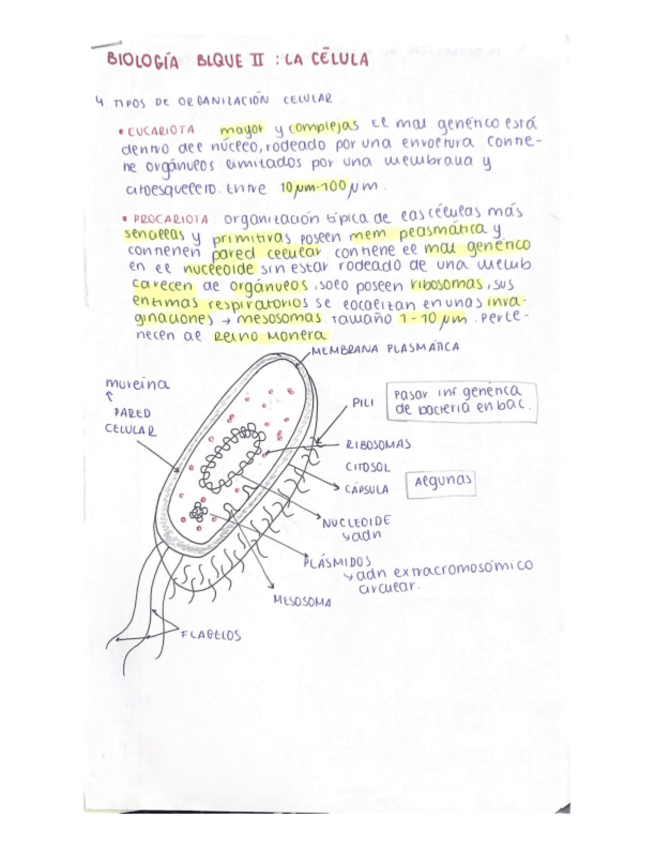 BIOLOGÍA BLQUE II : LA CÉLULA
4 TIPOS DE ORGANIZACIÓN CELULAR
• EUCARIOTA mayor y complejas El mat genético está
dentro del núcleo, rodeado por una envoltura. Contie-
ne orgánulos limitados por una membrana y
citoesqueleto. Entre 10 µm-100 µm.
• PROCARIOTA: organización típica de las células más
sencillas y primitivas poseen mem plasmática y
contienen pared celular. contiene el mat genético
en el nucleoide sin estar rodeado de una memb.
carecen de orgánulos, solo poseen ribosomas, sus
enzimas respiratorios se localizan en unas inva-
ginaciones → mesosomas. Tamaño 1-10 µm. Perte-
necen al Reino Monera.
MEMBRANA PLASMÁTICA
mureína
PARED
CELULAR
PILI
Pasar inf genética
de bacteria en bac.
RIBOSOMAS
CITOSOL
CÁPSULA
Algunas
NUCLEOIDE
↳ adn
PLÁSMIDOS
↳ adn extracromosómico
circular.
MESOSOMA
FLAGELOS